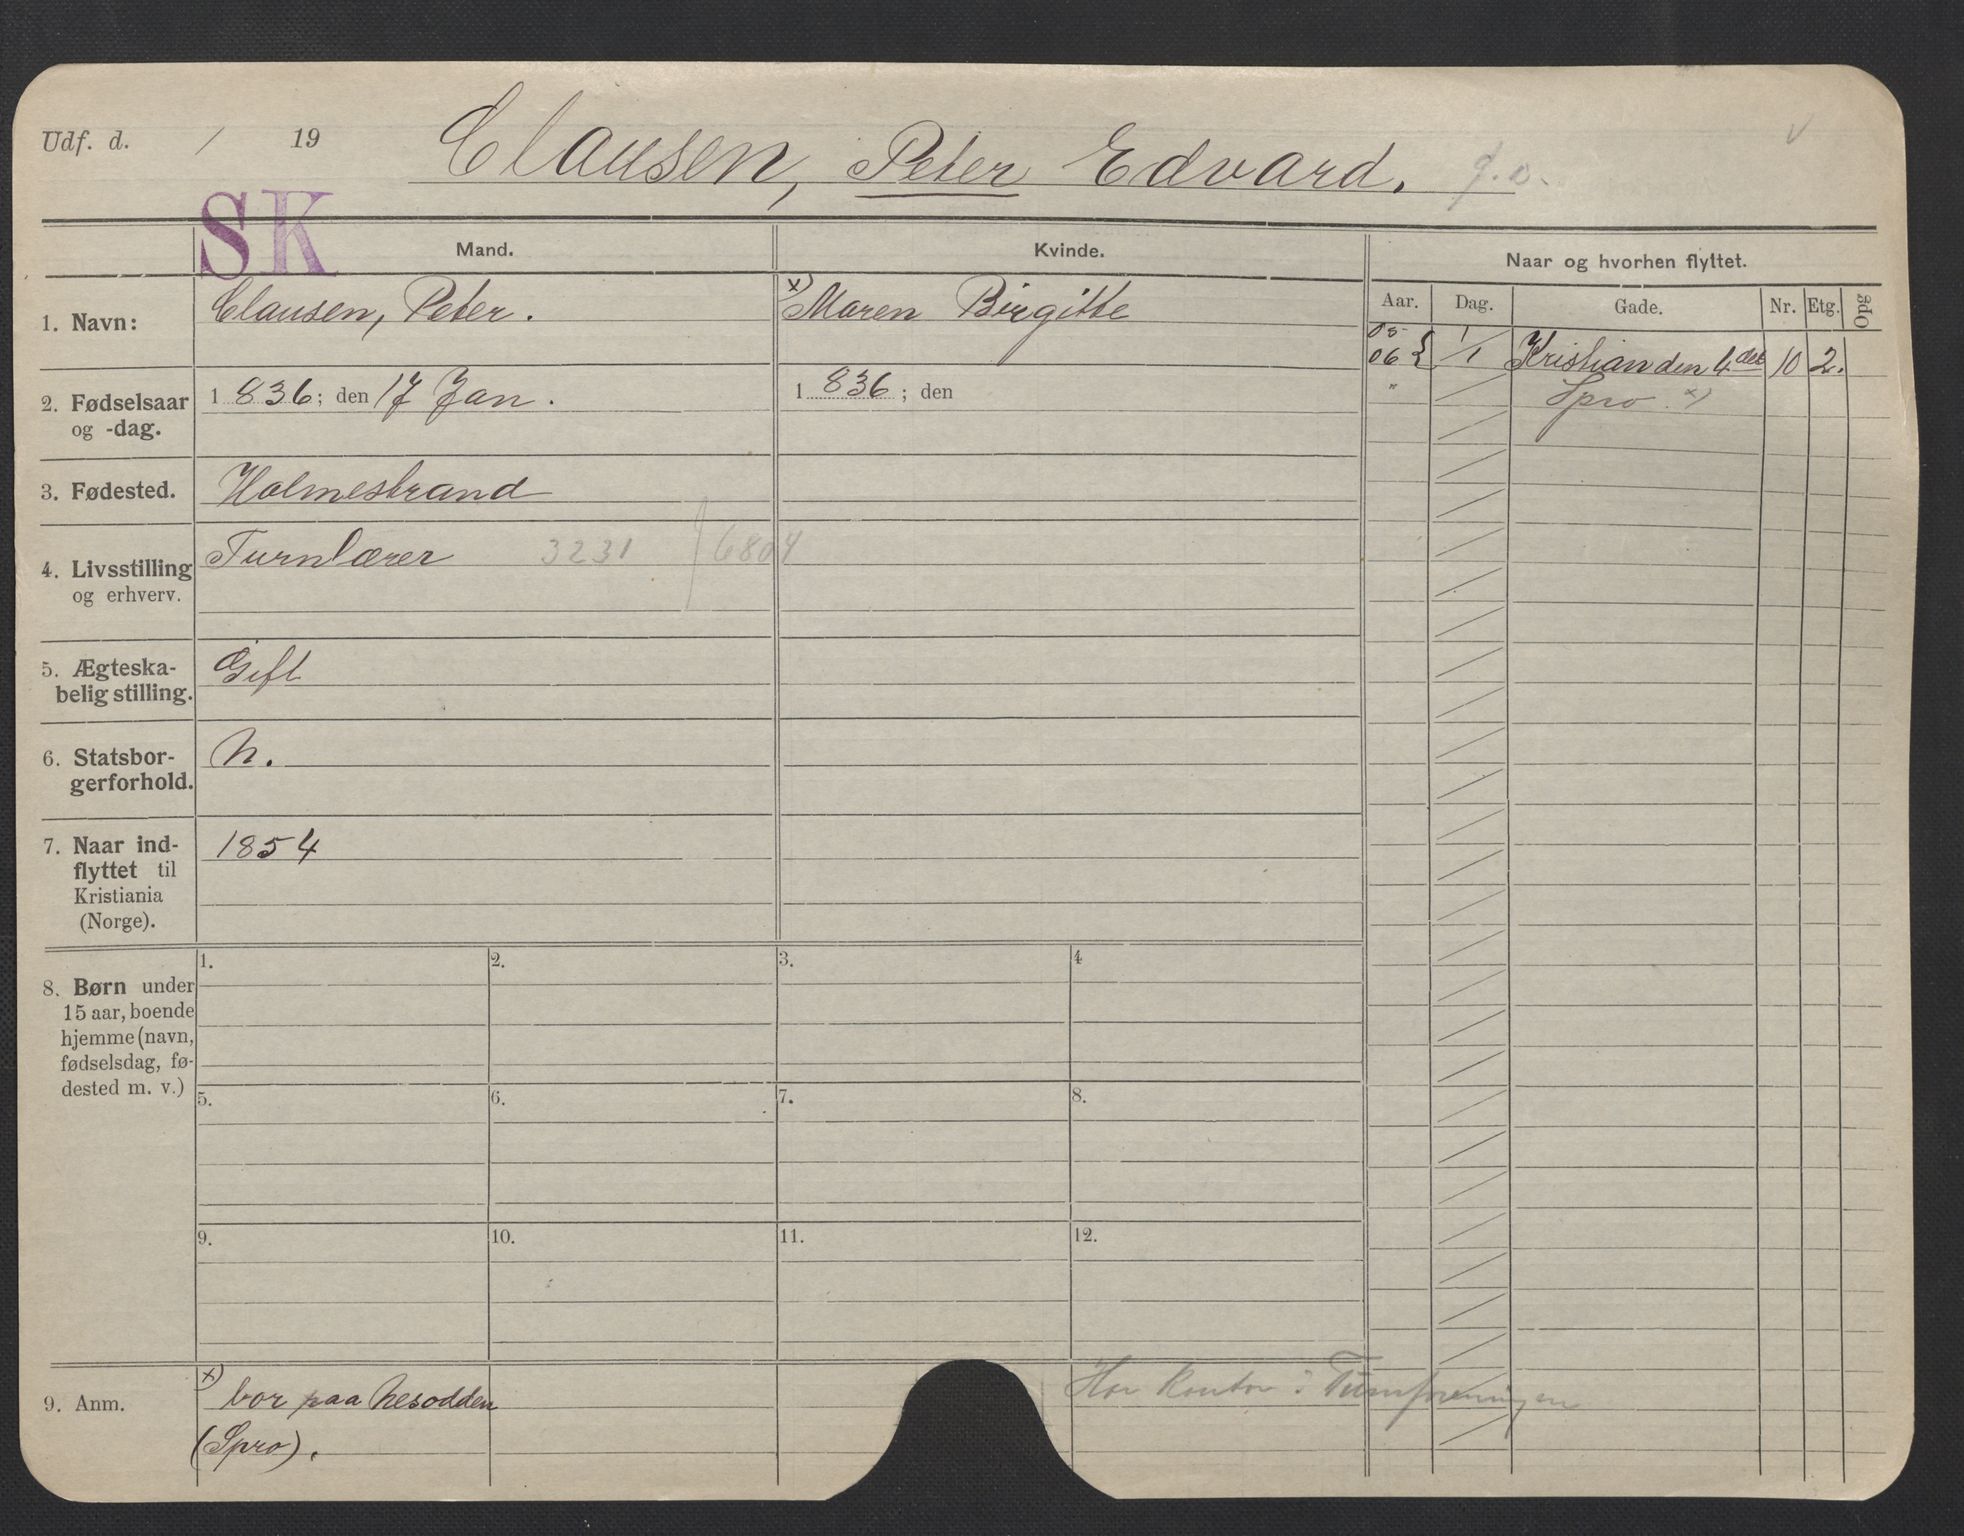 Udf. d. / 19
Clausen, Peter Edvard.
SK
Mand.
Kvinde.
Naar og hvorhen flyttet.
Aar. Dag. Gade. Nr. Etg. Opg
1. Navn:
Clausen, Peter.
x) Maren Birgitte
05
06 } 1/1 Kristian den 4. des 10 2.
" Spro x)
2. Fødselsaar
og -dag.
1 836; den 17 Jan.
1 836; den
3. Fødested.
Holmestrand
4. Livsstilling
og erhverv.
Turnlærer 3231 6804
5. Ægteska-
belig stilling.
Gift
6. Statsbor-
gerforhold.
N.
7. Naar ind-
flyttet til
Kristiania
(Norge).
1854
8. Børn under
15 aar, boende
hjemme (navn,
fødselsdag, fø-
dested m. v.)
1. 2. 3. 4
5. 6. 7. 8.
9. 10. 11. 12.
9. Anm.
x) bor paa Nesodden
(Spro).
Har kontor i Turnforeningen